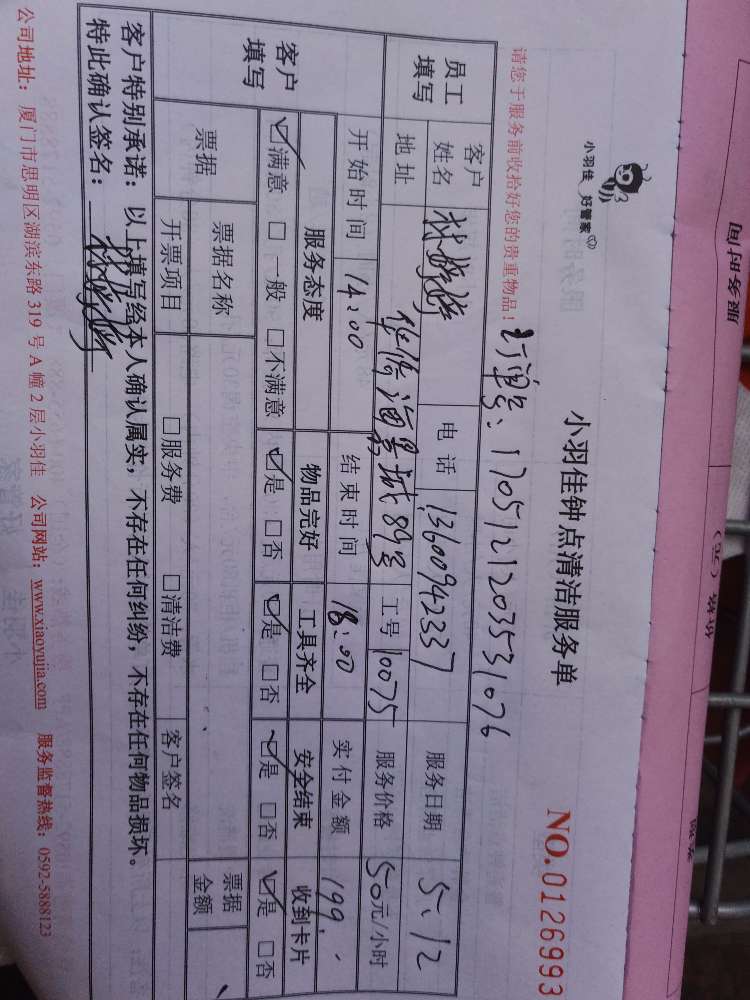 小羽佳 好管家
小羽佳钟点清洁服务单
NO.0126993
请您于服务前收拾好您的贵重物品！
订单号：170512120353 1076
员工填写
客户姓名
电话 13600942337
服务日期 5.12
地址 华侨海景城89号
工号 10075
服务价格 50元/小时
开始时间 14:00
结束时间 18:00
实付金额 199.
客户填写
服务态度 物品完好 工具齐全 安全结束 收到卡片
☑满意 □一般 □不满意 ☑是 □否 ☑是 □否 ☑是 □否 ☑是 □否
票据 票据名称 票据金额
开票项目 □服务费 □清洁费 客户签名
客户特别承诺：以上填写经本人确认属实，不存在任何纠纷，不存在任何物品损坏。
特此确认签名：
公司地址：厦门市思明区湖滨东路 319 号 A 幢 2 层小羽佳 公司网站：www.xiaoyujia.com 服务监督热线：0592-5888123